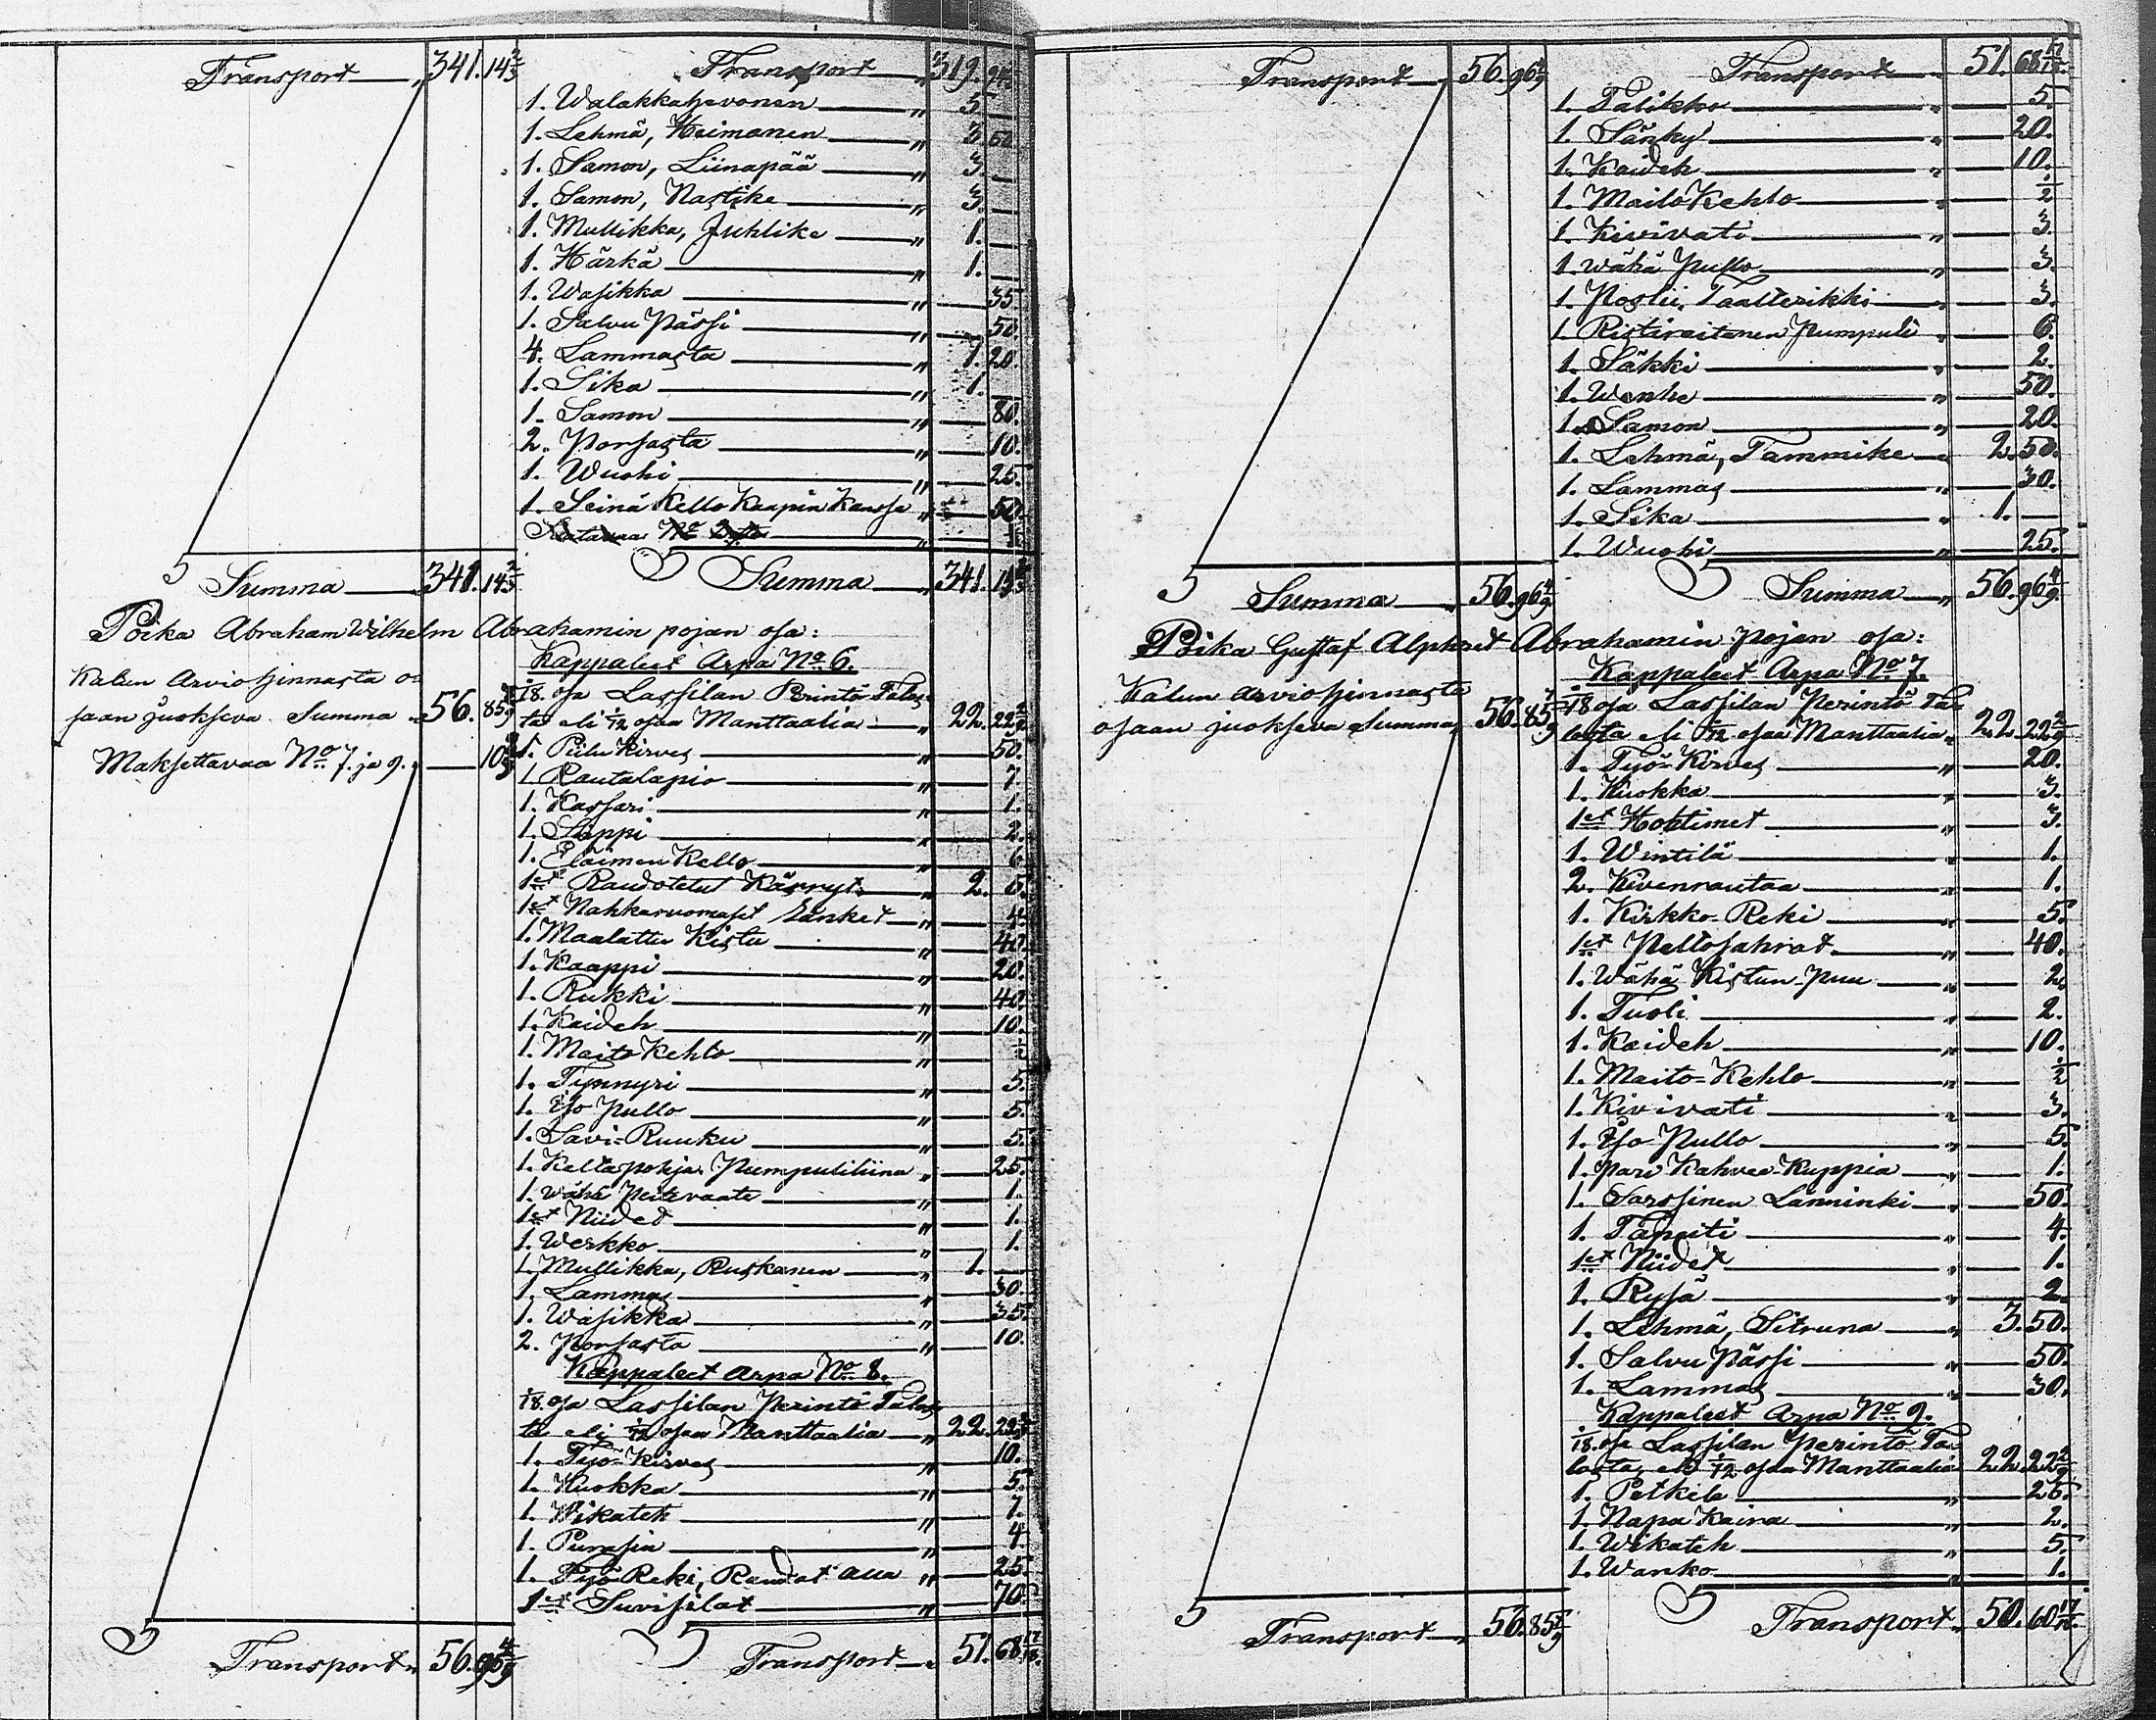 Transport 341. 14 2/3
Transport 319. 24
1. Walakkahevonen 5
1. Lehmä, Heimonen 3. 50
1. Samon, Liinapää 3.
1. Samon, Nastike 3.
1. Mullikka, Juhlike 1.
1. Härkä 1.
1. Wasikka 35
1. Salvu Pässi 50
4. Lammasta 1. 20.
1. Sika 1.
1. Samon 80.
2. Porsasta 10.
1. Wuohi 25.
1. Seinä Kello Kaapin Kanssa 50.
Summa 341. 14 2/3
Summa 341. 14 2/3
Poika Abraham Wilhelm Abrahamin pojan osa:
Kalun Arviohinnasta o-
saan juokseva Summa 56. 85 5/9
Maksettavaa No 7. ja 9. 10 8/9
Kappaleet Arpa No 6.
1/18. osa Lassilan Perintö Talos-
ta eli 1/12 osaa Manttaalia 22. 22 2/9
1. Piilu Kirves 50.
1. Rautalapio 7.
1. Kassari 1.
1. Sappi 2.
1. Eläimen Kello 6
1et Raudotetut Kärryt 2. 5.
1et Nahkaruomaset Länket 4.
1. Maalattu Kistu 40.
1. Kaappi 20.
1. Rukki 40
1. Kaideh 10.
1. Maito Kehlo 1/2
1. Tynnyri 5.
1. Iso Pullo 5.
1. Savi-Ruuku 5.
1. Keltapohja Pumpuliliina 25.
1. Wähä Peitevaate 1.
1et Niided 1.
1. Werkko 1.
1. Mullikka, Ruskanen 1.
1. Lammas 30.
1. Wasikka 35.
2. Porsasta 10.
Kappaleet Arpa No 8.
1/18. osa Lassilan Perintö Talos-
ta eli 1/12 osaa Manttaalia 22. 22 2/9
1. Työ-Kirves 10.
1. Kuokka 5.
1. Wikateh 7.
1. Purasin 4.
1. Työ Reki, Raudat alla 25.
1et Suvisilat 70.
Transport 56. 96 4/9
Transport 51. 68 17/18.
Transport 56. 96 4/9
Transport 51. 68 17/18.
1. Talikko 5.
1. Sänky 20.
1. Kaideh 10.
1. Maito Kehlo 1/2
1. Kivivati 3.
1. wähä Pullo 3.
1. Poslii. Taalterikki 3.
1. Ristiraitanen Pumpuli 6.
1. Säkki 2.
1. Wenhe 50.
1. Samon 20.
1. Lehmä, Tammike 2. 50.
1. Lammas 30.
1. Sika 1.
1. Wuohi 25.
Summa 56. 96 4/9
Summa 56. 96 4/9.
Poika Gustaf Alphret Abrahamin pojan osa:
Kalun arviohinnasta
osaan juokseva Summa 56. 85 5/9
Kappaleet Arpa No 7.
1/18 osa Lassilan Perintö Ta-
losta eli 1/12 osaa Manttaalia 22. 22 2/9
1. Työ-Kirves 20.
1. Kuokka 3.
1et Hohtimet 3.
1. Wintilä 1.
2. Kivenrautaa 1.
1. Kirkko-Reki 5.
1et Peltosahrat 40.
1. Wähä Kistun-Puu 2.
1. Tuoli 2.
1. Kaideh 10.
1. Maito-Kehlo 1/2
1. Kivivati 3.
1. Iso Pullo 5.
1. pari Kahvee-Kuppia 1.
1. Sarssinen Länninki 50.
1. Tapeiti 4.
1et Niidet 1.
1. Rysä 2.
1. Lehmä, Sitruna 3. 50.
1. Salvu Pässi 50.
1. Lammas 30.
Kappaleet Arpa No 9.
1/18. osa Lassilan Perintö Ta-
losta, eli 1/12 osaa Manttaalia 22. 22 2/9
1. Petkele 25.
1. Napa Kaira 2.
1. Wikateh 5.
1. Wanko 1.
Transport 56. 85 5/9
Transport 50. 60 17/18.